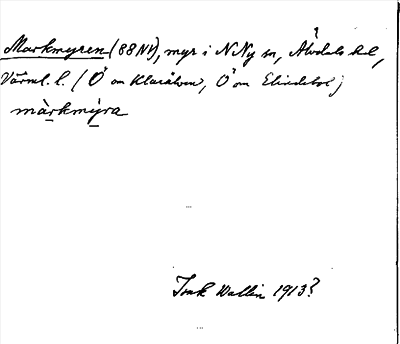 Markmyren (88NV), myr i N Ny sn, Älvdals hd,
Värml. l. (Ö om Klarälven, Ö om
märkmýra
Isak Wallin 1913?